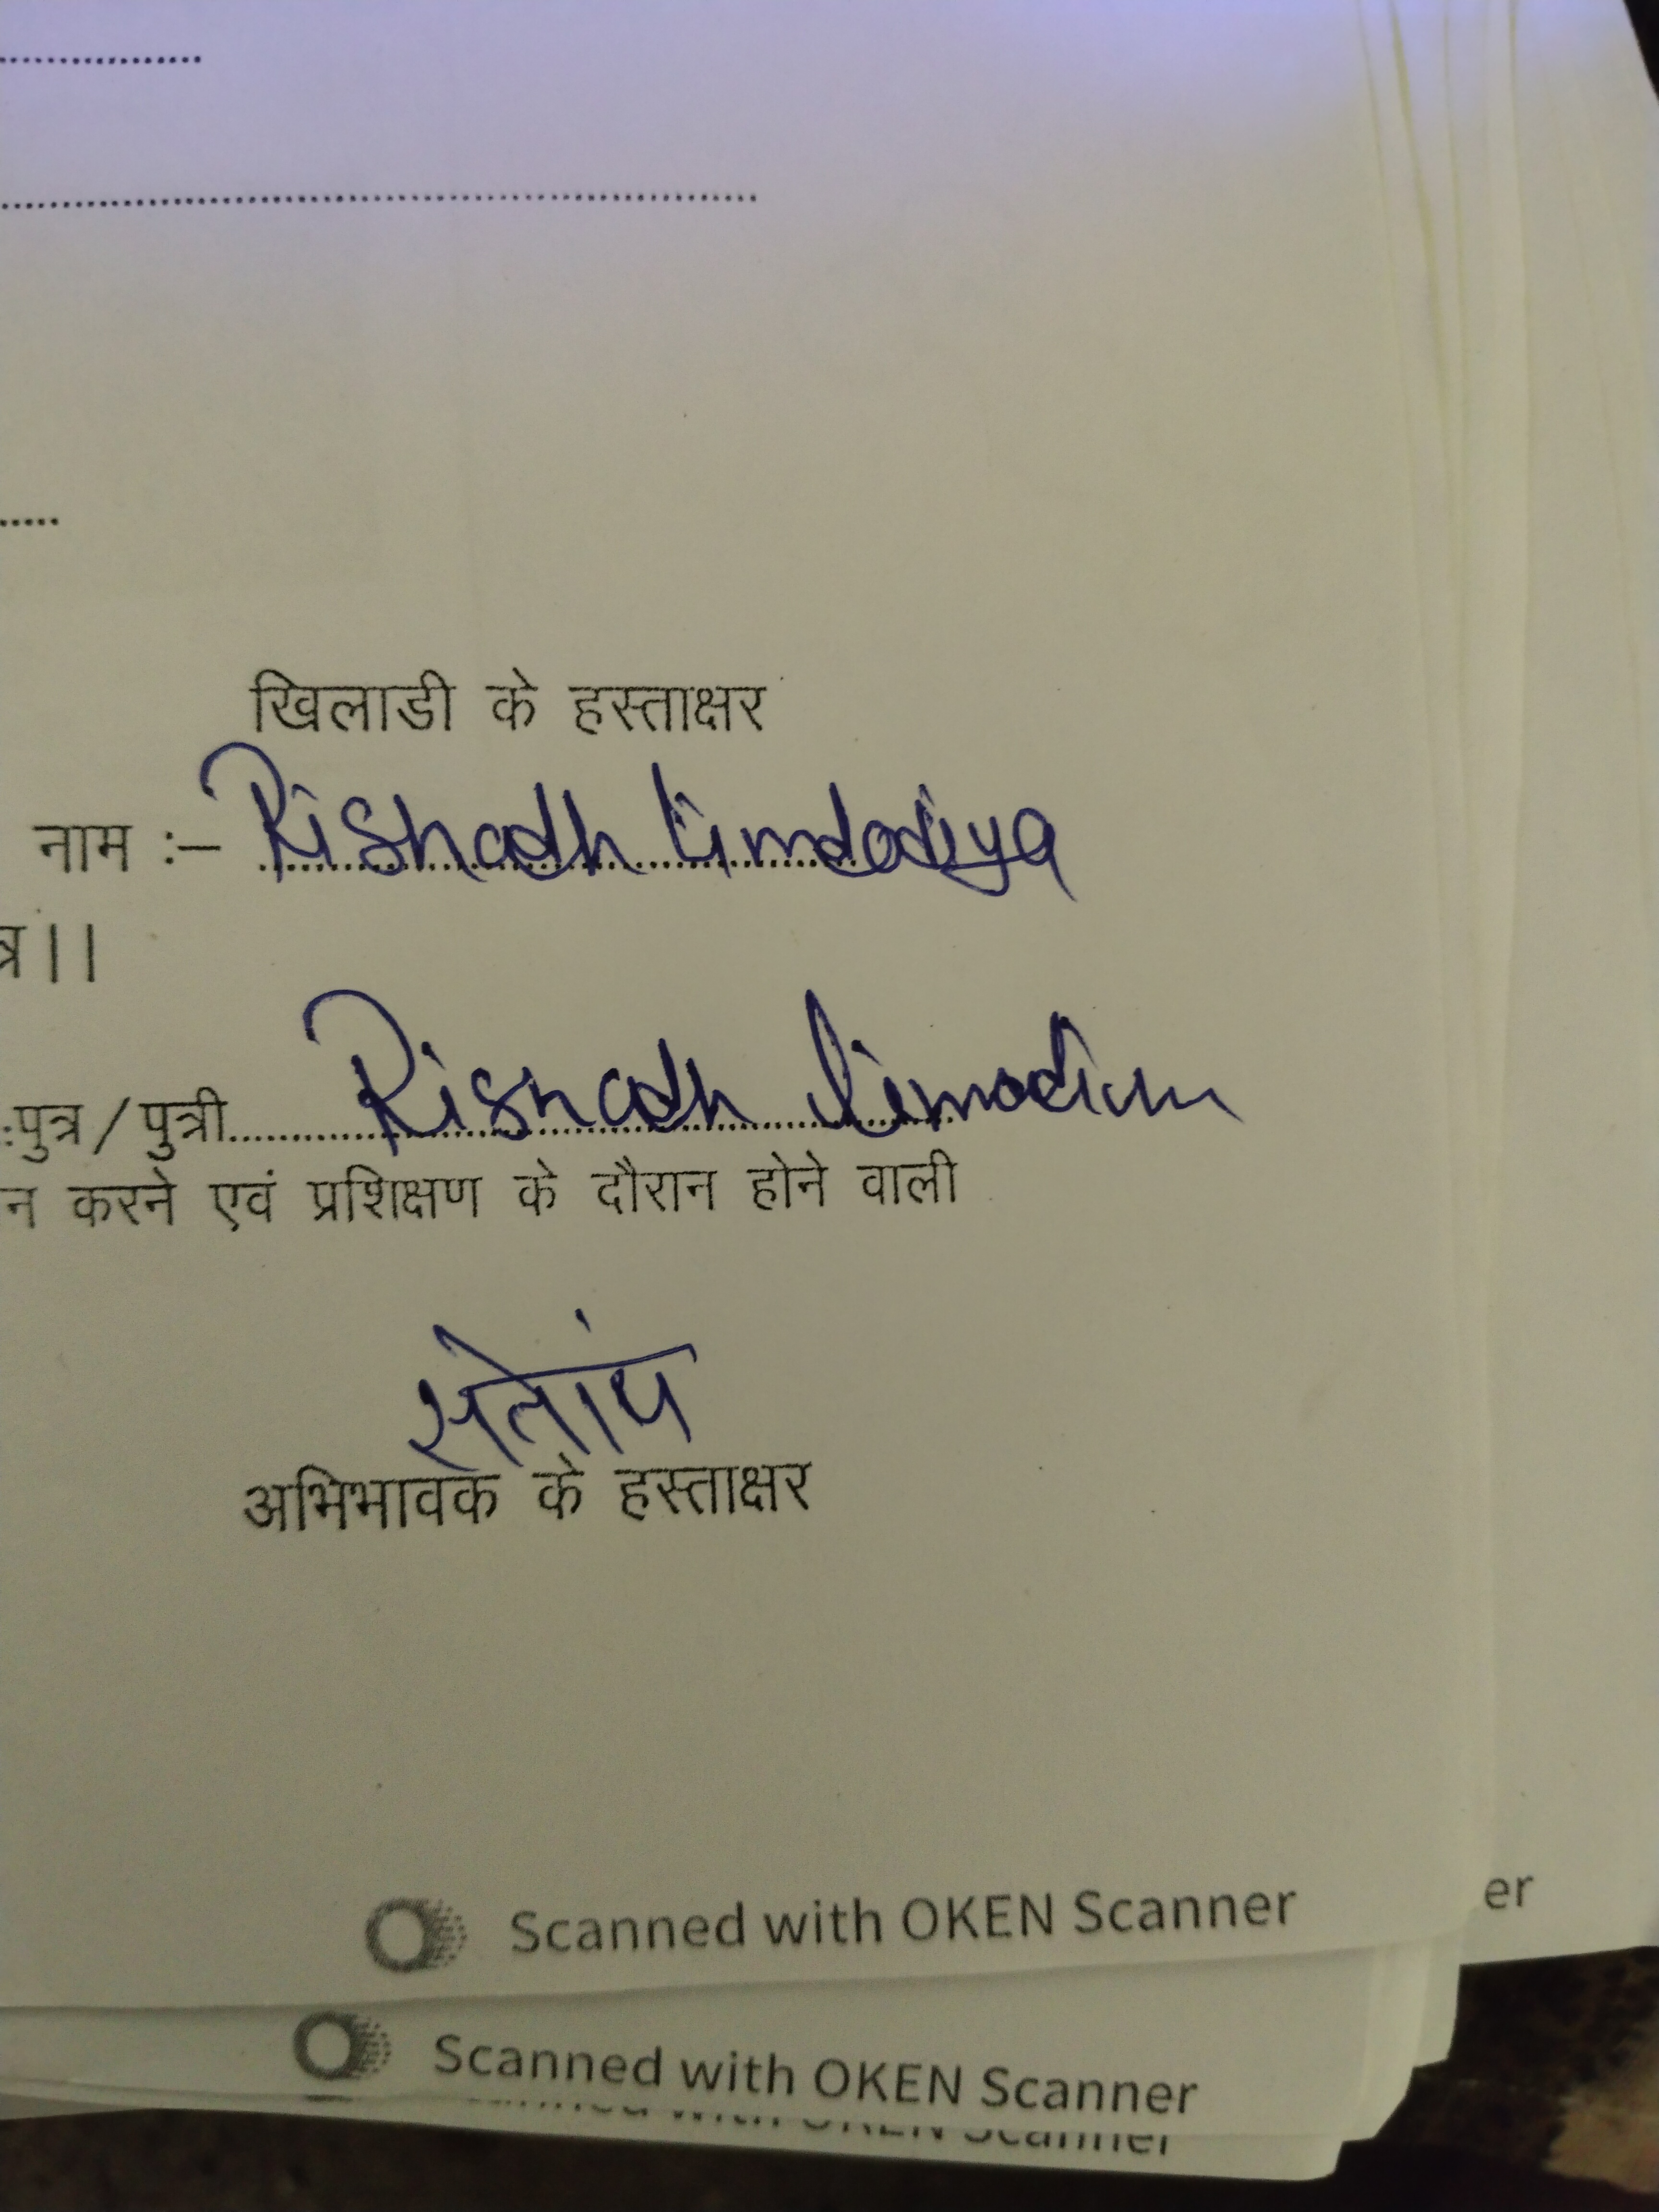 खिलाडी के हस्ताक्षर
नाम :– Rishadh Limdodiya
त्र।।
:पुत्र / पुत्री Rishadh
न करने एवं प्रशिक्षण के दौरान होने वाली
अभिभावक के हस्ताक्षर
Scanned with OKEN Scanner
er
Scanned with OKEN Scanner
Scanner